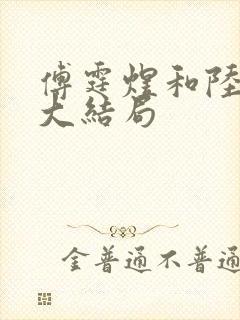 傅霆煌和陸
大結局
金普通不普通